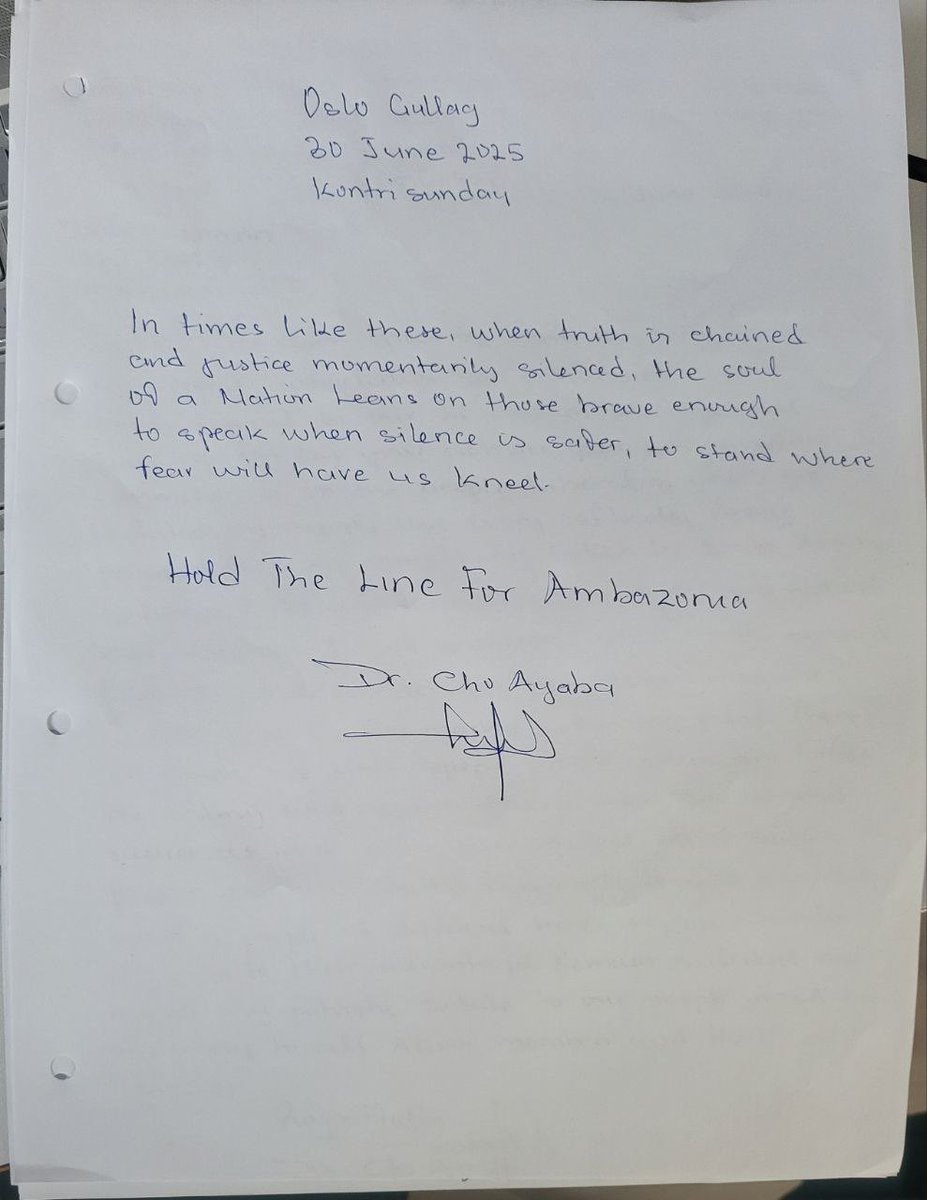 Oslo Gullag
30 June 2025
Kontri sunday
In times like these, when truth is chained
and justice momentarily silenced, the soul
of a Nation Leans on those brave enough
to speak when silence is safer, to stand where
fear will have us kneel.
Hold The Line For Ambazonia
Dr. Cho Ayaba